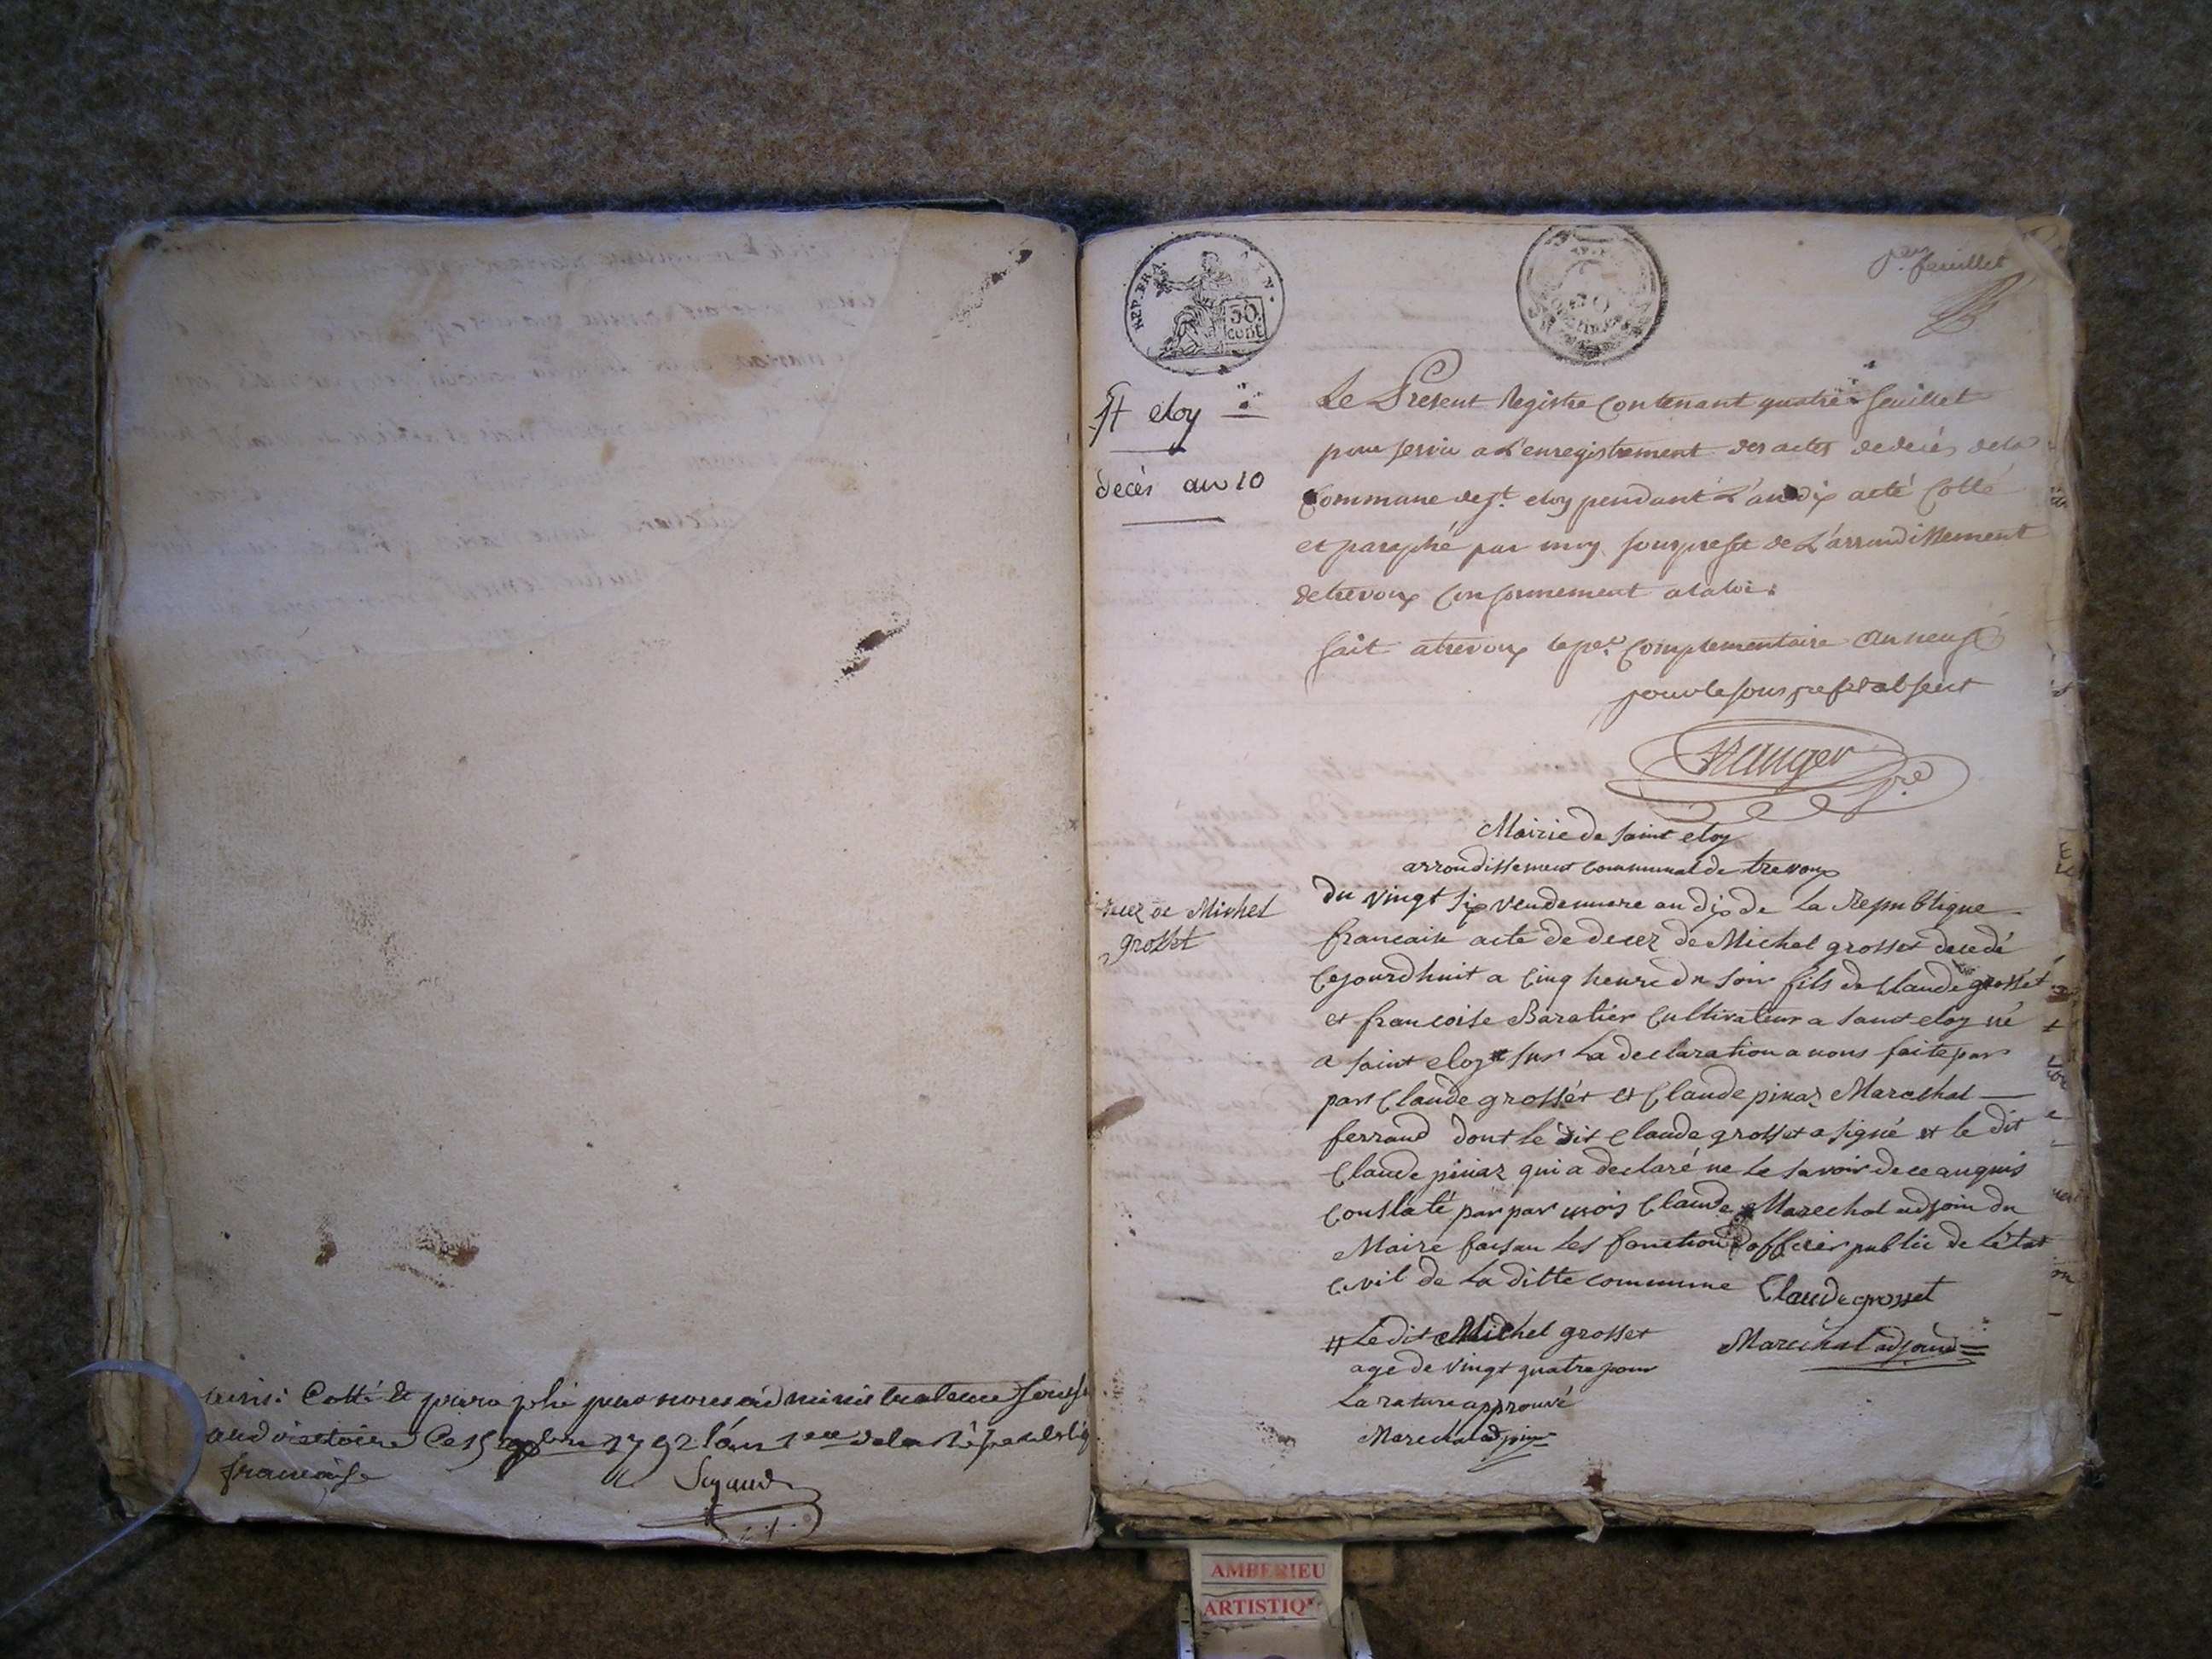 ainsi Cotté et paraphé par nous administrateur sous
au directoire Ce 15 1792 l'an 1er de la Républiq
française
Sigaud
REP. FRA
50
cent
per feuillet
St eloy
décès an 10
Le Present Registre Contenant quatre feuillet
pour servir a L'enregistrement des actes de decès de la
Commune de st. eloy pendant L'an dix acté Cotté
et paraphé par moy souprefet de L'arrondissement
de trevoux Conformement a la loi.
fait a trevoux le per. Complementaire an neuf
pour le sous prefet absent
Mairie de saint eloy
arrondissement communal de trevoux
decez de Michel
grosset
du vingt six vendemiere an dix de La Republique
francaise acte de decez de Michel grosset decedé
Cejourdhuit a Cinq heure du soir fils de Claude grosset
et francoise Baratier Cultivateur a saint eloy né
a saint eloy # sur La declaration a nous faite par
par Claude grosset et Claude pinaz Marechal
ferrand dont le dit Claude grosset a signé et le dit
Claude pinaz qui a declaré ne Le savoir de ce anquis
Constaté par par mois Claude Marechal adjoin du
Maire faisan Les fonction d'officier public de L'état
Civil de La ditte commune Claude grosset
# Le dit Michel grosset Marechal adjoind
age de vingt quatre pour
La rature approuvé
Marechal adjoint
AMBERIEU
ARTISTIQ